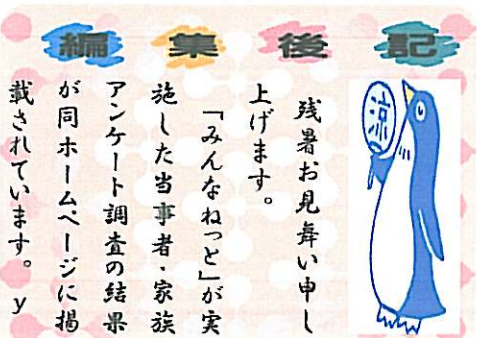 編集後記
涼
残暑お見舞い申し
上げます。
「みんなねっと」が実
施した当事者・家族
アンケート調査の結果
が同ホームページに掲
載されています。y